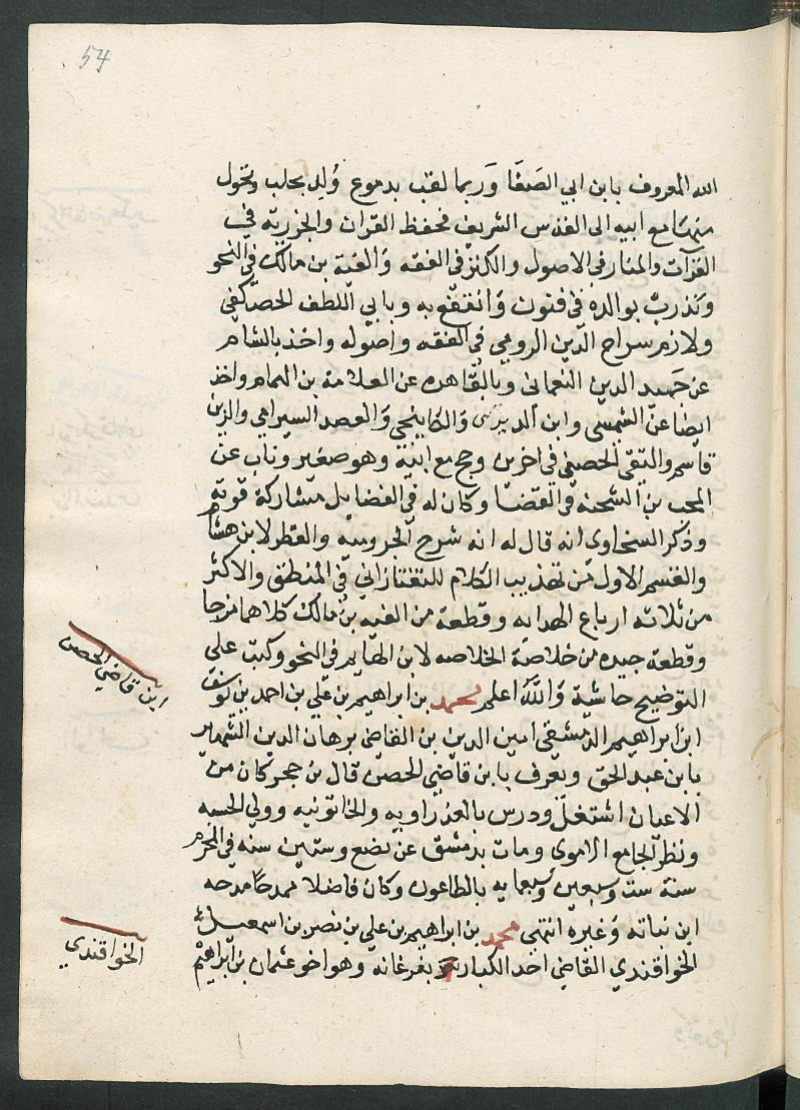 54
الله المعروف بابن ابي الصفا وربما لقب بدموع ولد بحلب وتحول
منها مع ابيه الى القدس الشريف فحفظ القران والجزريه في
القرآت والمنار في الاصول والكنز في الفقه والفية بن مالك في النحو
وتدرب بوالده في فنون وانتفع به وبابي اللطف الحصكفي
ولازم سراج الدين الرومي في الفقه واصوله واخذ بالشام
عن حميد الدين النعماني وبالقاهره عن العلامة بن الهمام واخذ
ايضا عن الشمسي وابن الديري والكافيجي والعضد السيرامي والزين
قاسم والتقى الحصني في اخرين وحج مع ابيه وهو صغير وناب عن
المحب بن الشحنه في القضا وكان له في الفضايل مشاركة قويه
وذكر السخاوى انه قال له انه شرح الجروميه والقطر لابن هشام
والقسم الاول من تهذيب الكلام للتفتازاني في المنطق والاكثر
من ثلاثه ارباع الهدايه وقطعة من الفيه بن مالك كلاهما مزجا
وقطعة جيده من خلاصة الخلاصه لابن الهايم في النحو وكتب على
التوضيح حاشية والله اعلم محمد بن ابراهيم بن علي بن احمد بن يوسف
ابن ابراهيم الدمشقي امين الدين بن القاضي برهان الدين الشهير
بابن عبد الحق ويعرف بابن قاضي الحصن قال بن حجر كان من
الاعيان اشتغل ودرس بالعذراويه والخاتونيه وولي الحسبه
ونظر الجامع الاموى ومات بدمشق عن بضع وستين سنه في المحرم
سنة ست وسبعين وسبعمايه بالطاعون وكان فاضلا ممدحا مدحه
ابن نباته وغيره انتهى محمد بن ابراهيم بن علي بن نصر بن اسمعيل
الخواقندي القاضي احد الكبار بفرغانه وهو اخو عثمان بن ابراهيم
ابن قاضي الحصن
الخواقندي